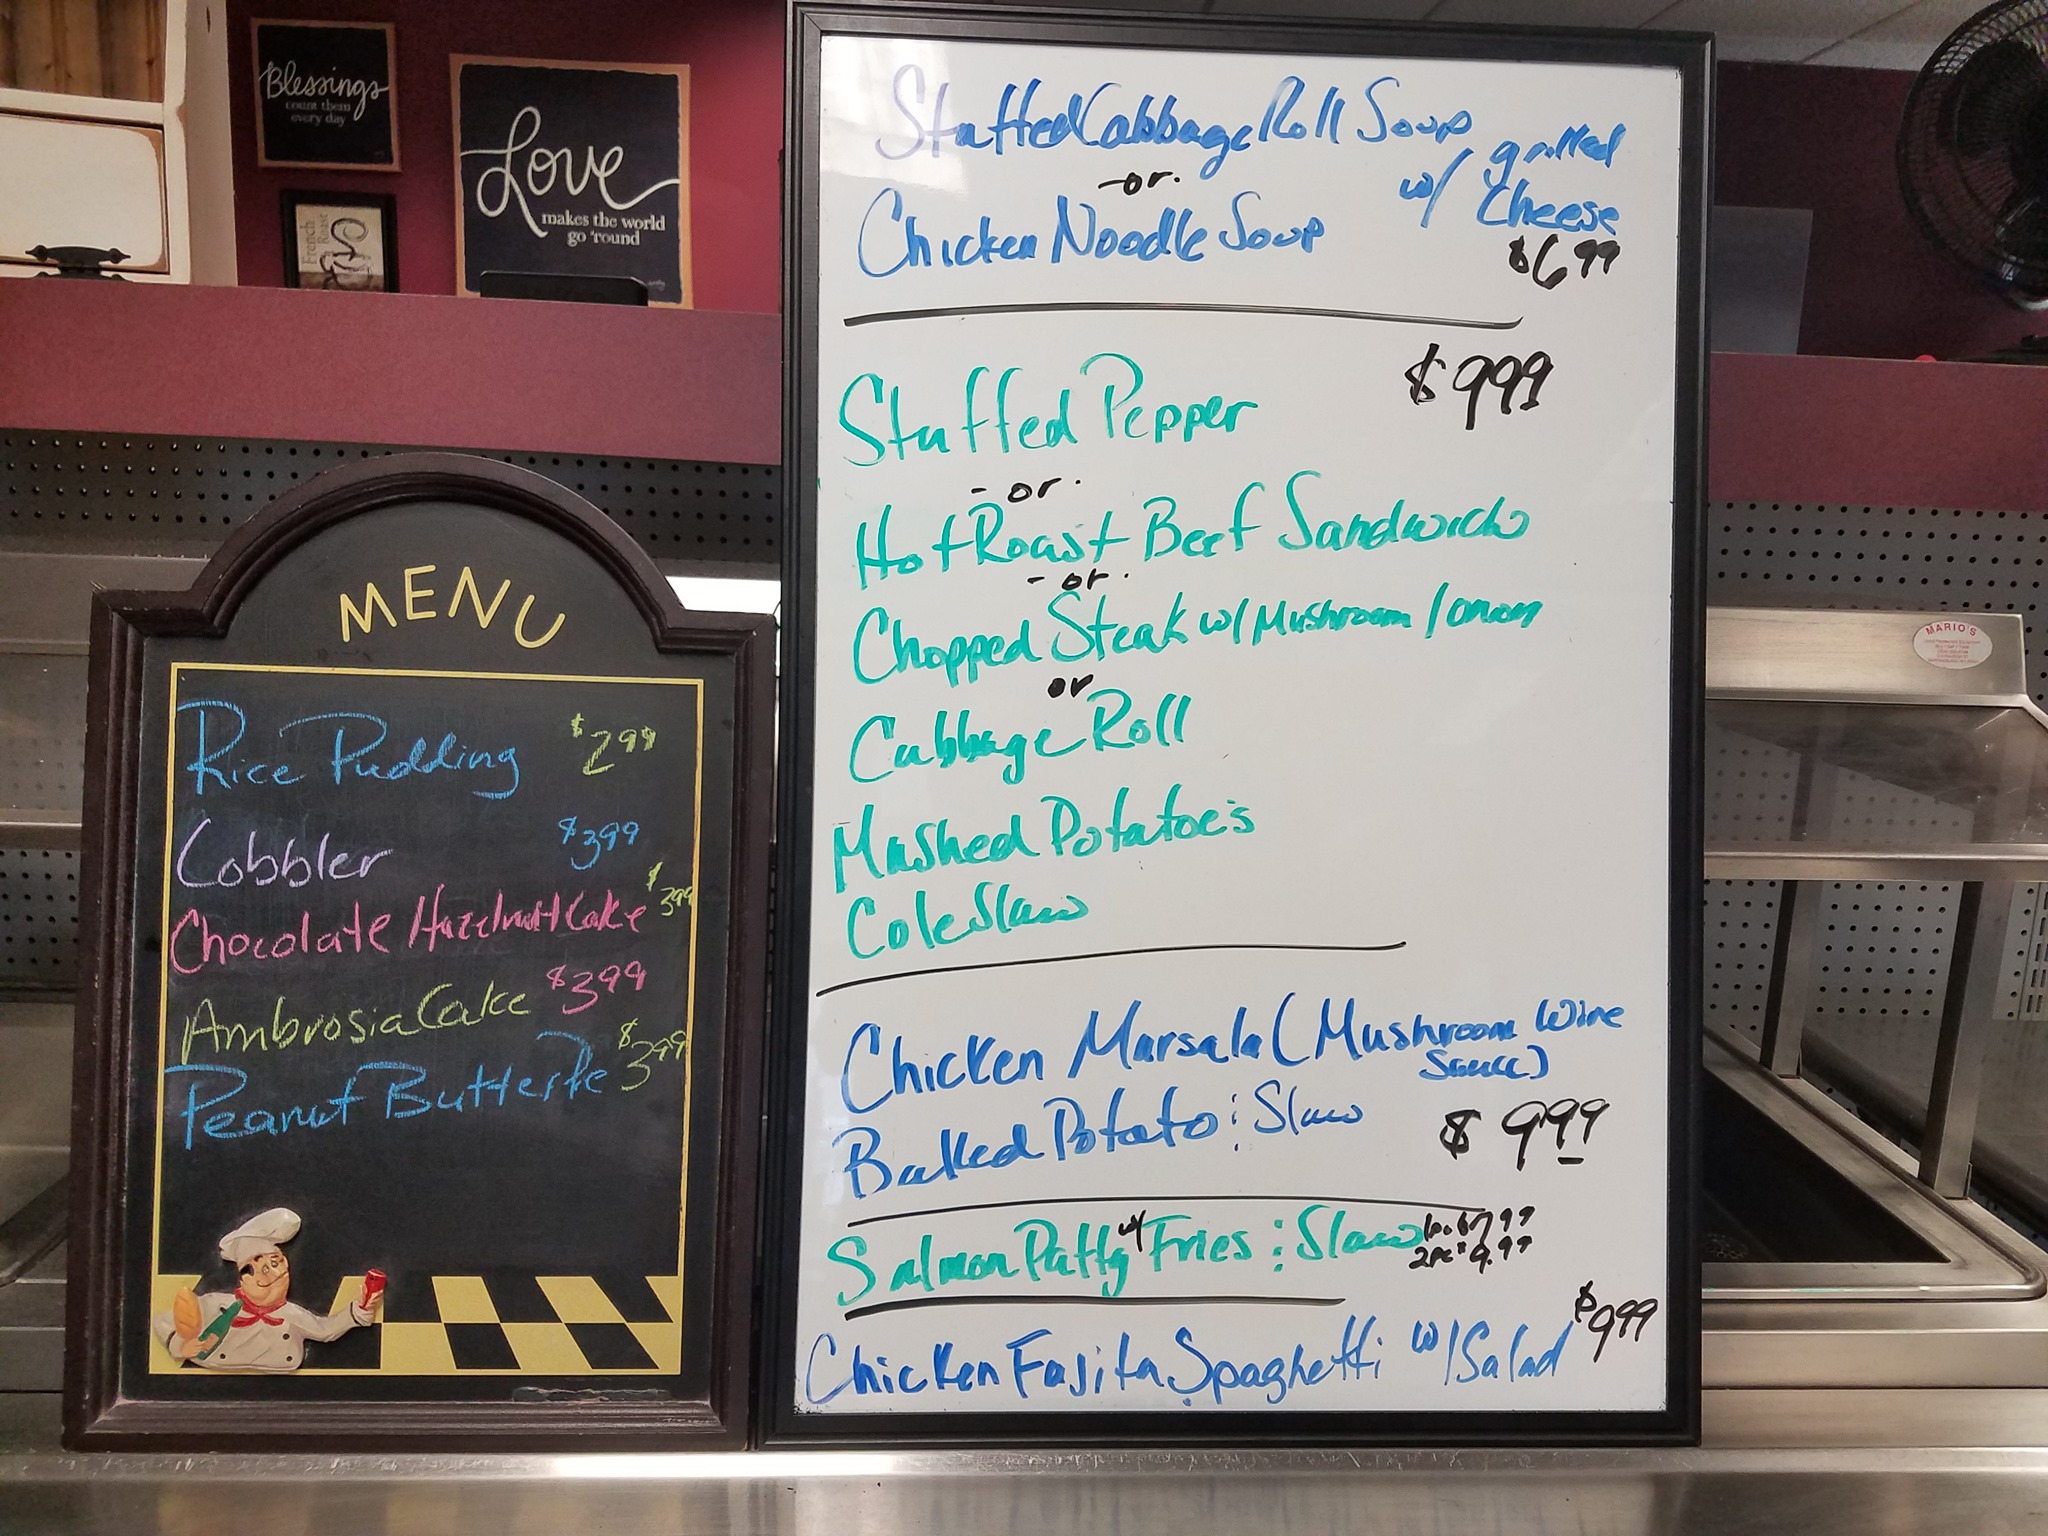 Blessings
count them
every day
Love
makes the world
go 'round
French
Roast
MENU
Rice Pudding $2.99
Cobbler $3.99
Chocolate Hazelnut Cake $3.99
Ambrosia Cake $3.99
Peanut Butter Pie $3.99
Stuffed Cabbage Roll Soup
-or.
Chicken Noodle Soup
w/ grilled
Cheese
$6.99
Stuffed Pepper $9.99
-or.
Hot Roast Beef Sandwich
-or.
Chopped Steak w/ Mushroom / onion
or
Cabbage Roll
Mashed Potatoe's
Coleslaw
Chicken Marsala (Mushroom Wine
Sauce)
Baked Potato : Slaw $9.99
Salmon Patty w/ Fries : Slaw 7.99
2pc $9.99
Chicken Fajita Spaghetti w/ Salad $9.99
MARIO'S